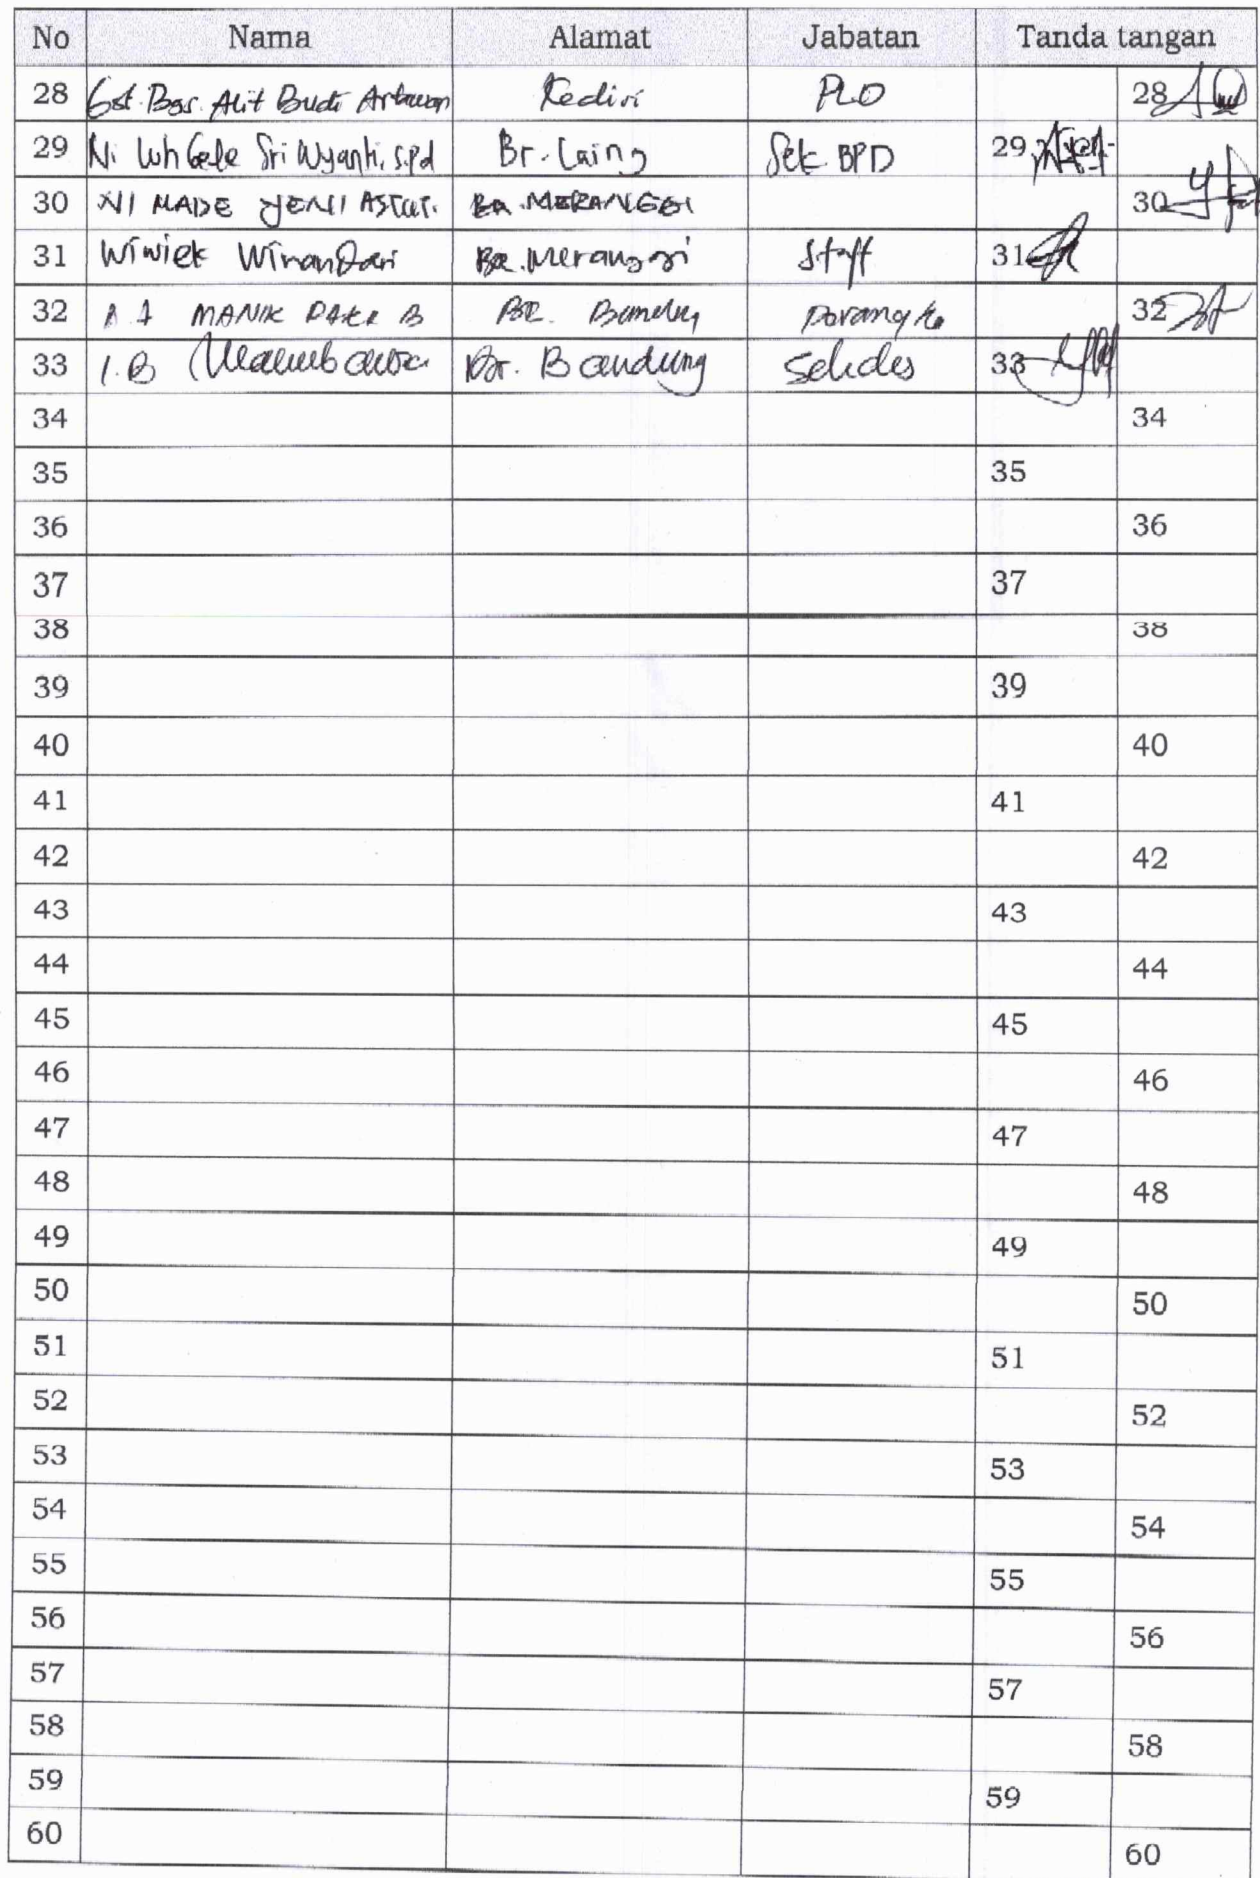 No Nama Alamat Jabatan Tanda tangan
28 Gst. Bgs. Alit Budi Artawan Kediri PLD 28
29 Ni Luh Gede Sri Wyanti, S.Pd Br. Laing Sek. BPD 29
30 NI MADE YENI ASTUTI. BR. MERANGGI 30
31 Wiwiek Winandari Br. Meranggi Staff 31
32 A A MANIK B BR. 32
33 I.B Br. Bandung Sekdes 33
34 34
35 35
36 36
37 37
38 38
39 39
40 40
41 41
42 42
43 43
44 44
45 45
46 46
47 47
48 48
49 49
50 50
51 51
52 52
53 53
54 54
55 55
56 56
57 57
58 58
59 59
60 60